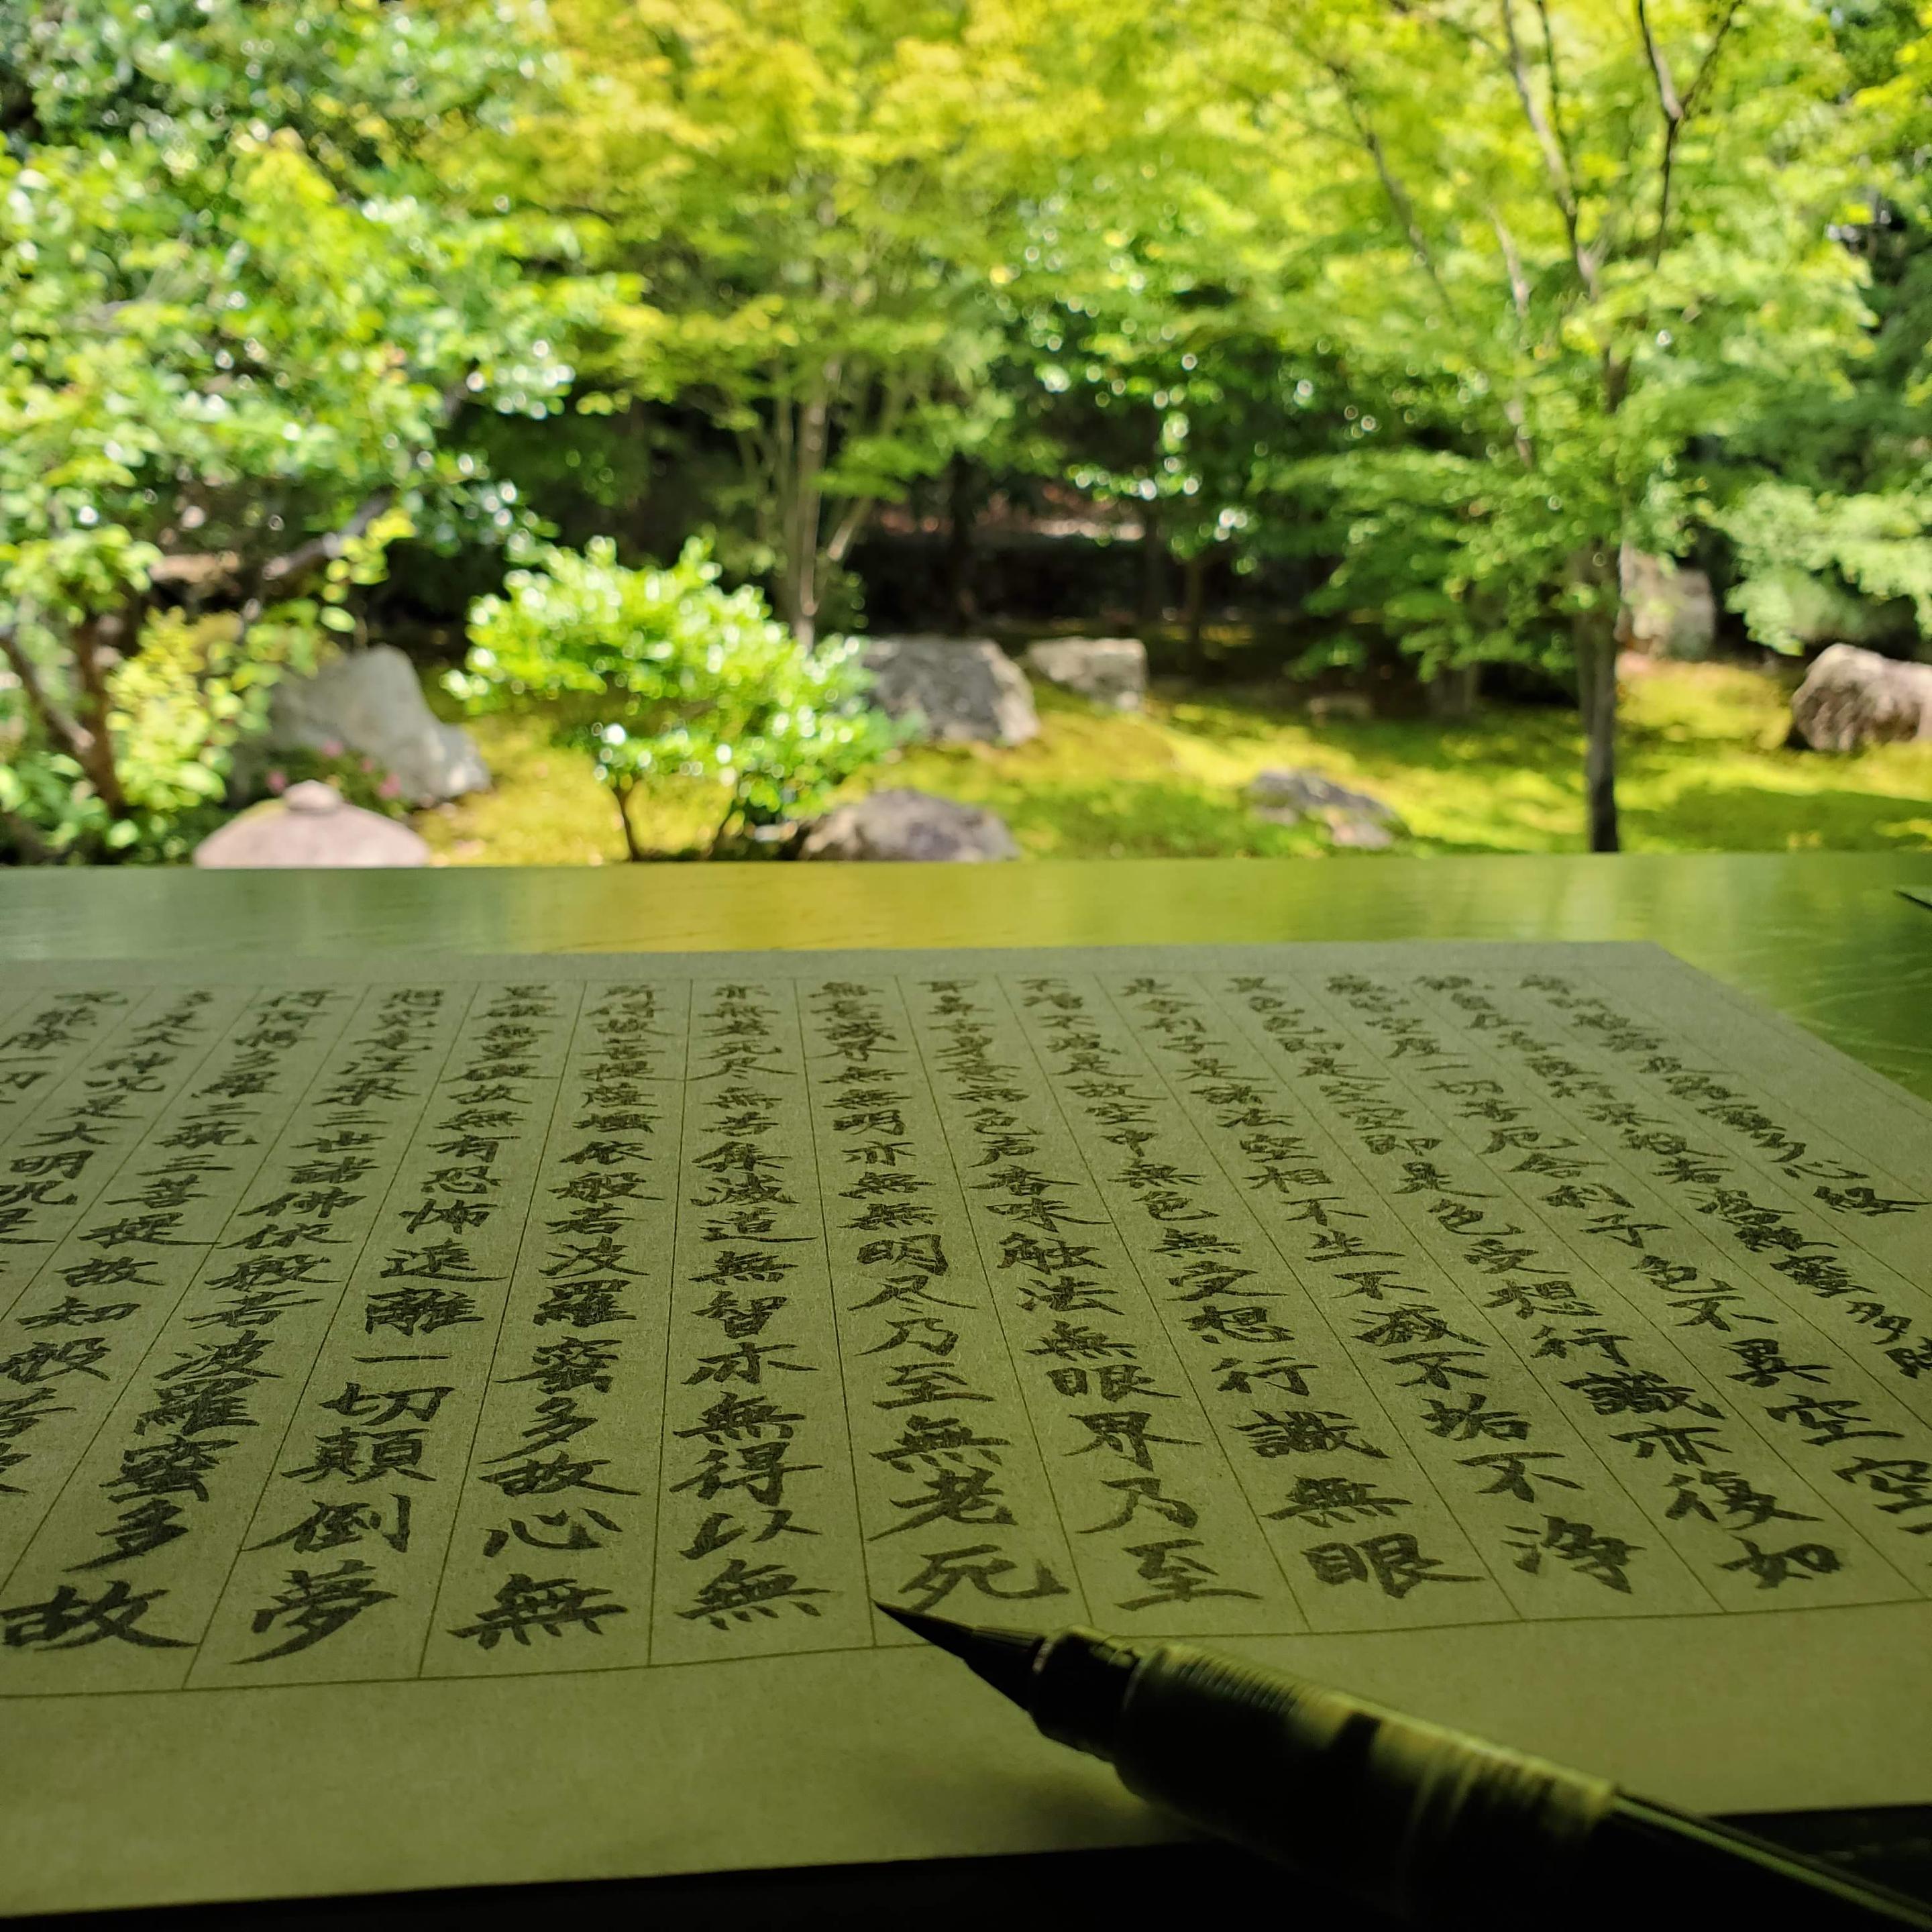 摩訶般若波羅蜜多心経
観自在菩薩行深般若波羅蜜多時
照見五蘊皆空度一切苦厄舎利子色不異空空
不異色色即是空空即是色受想行識亦復如
是舎利子是諸法空相不生不滅不垢不浄
不増不減是故空中無色無受想行識無眼
耳鼻舌身意無色声香味触法無眼界乃至
無意識界無無明亦無無明尽乃至無老死
亦無老死尽無苦集滅道無智亦無得以無
所得故菩提薩埵依般若波羅蜜多故心無
罣礙無罣礙故無有恐怖遠離一切顛倒夢
想究竟涅槃三世諸佛依般若波羅蜜多故
得阿耨多羅三藐三菩提故知般若波
多是大神呪是大明呪是
呪能除一切